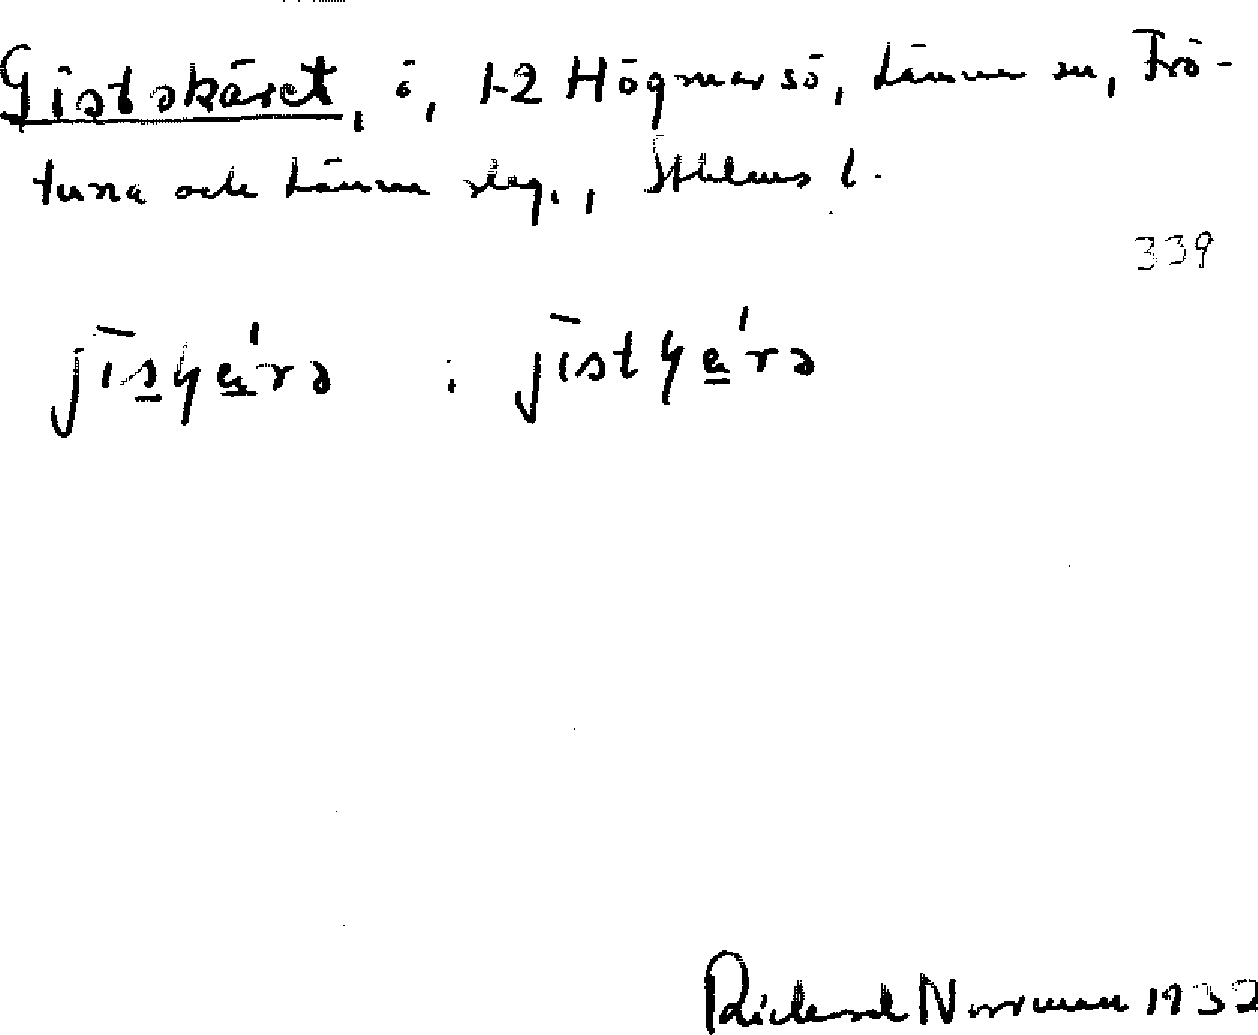 Gistskäret, ö, 1-2 Högmarsö, Länna sn, Frö-
tuna och Länna skg., Sthlms l.
339
jīsɥa̲'rə : jīstɥa̲'rə
Rickard Norrman 1932